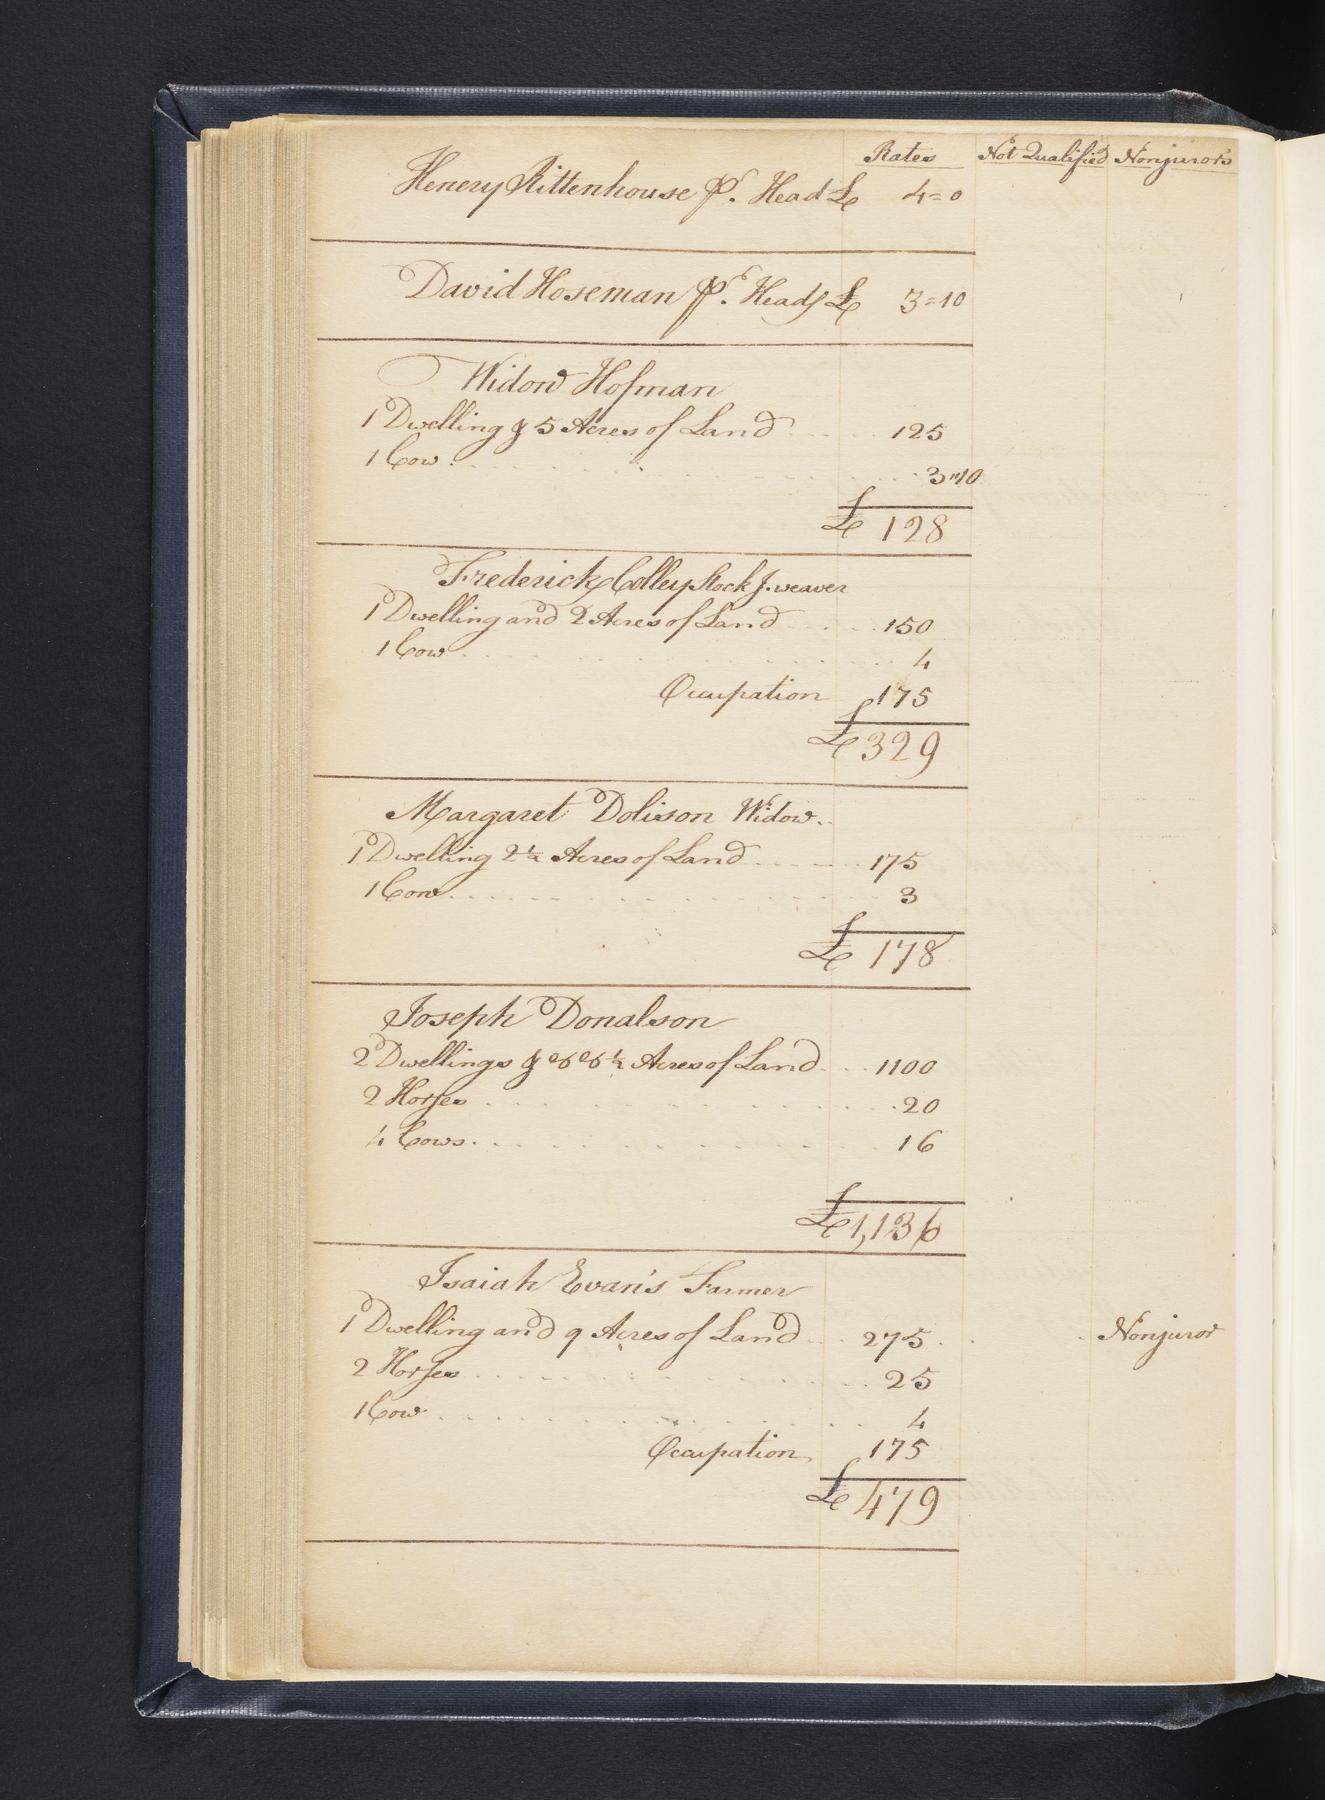 Rates Not Qualified Nonjuror's
Henery Rittenhouse Pr. Head £ 4=0
David Hoseman Pr. Head £ 3=10
Widow Hofman
1 Dwelling & 5 Acres of Land 125
1 Cow 3"10
£ 128
Frederick Colley Stock J. weaver
1 Dwelling and 2 Acres of Land 150
1 Cow 4
Occupation 175
£ 329
Margaret Dolison Widow
1 Dwelling 2 1/2 Acres of Land 175
1 Cow 3
£ 178
Joseph Donalson
2 Dwellings & Acres of Land 1100
2 Horses 20
4 Cows 16
£ 1,136
Isaiah Evan's Farmer
1 Dwelling and 9 Acres of Land 275 Nonjuror
2 Horses 25
1 Cow 4
Occupation 175
£ 479